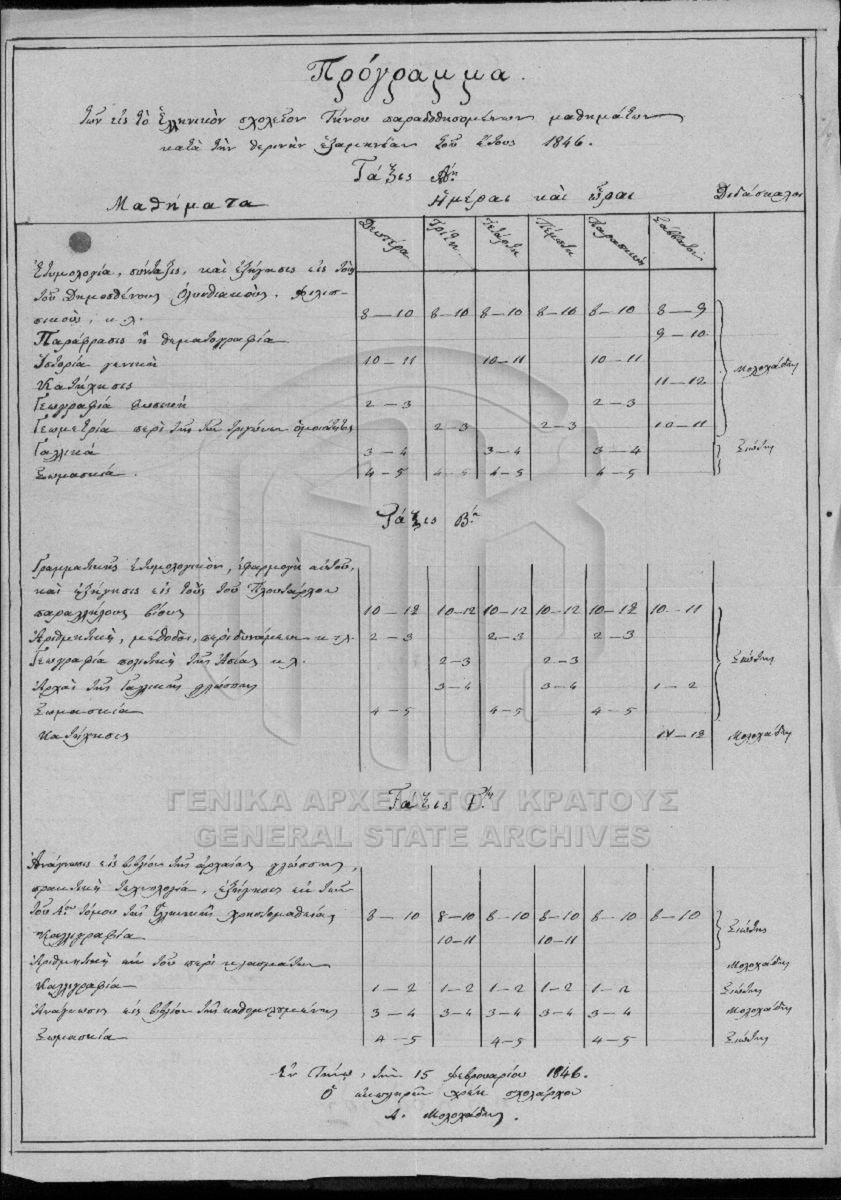 Πρόγραμμα.
τῶν εἰς τὸ Ἑλληνικὸν σχολεῖον Τήνου παραδοθησομένων μαθημάτων
κατὰ τὴν θερινὴν ἑξαμηνίαν τοῦ ἔτους 1846.
Τάξις Αη
Μαθήματα Ἡμέραι καὶ ὧραι Διδάσκαλοι
Δευτέρα Τρίτη Τετάρτη Πέμπτη Παρασκευή Σάββατον
Ἐτυμολογία, σύνταξις, καὶ ἐξήγησις εἰς τοὺς
τοῦ Δημοσθένους Ὀλυνθιακούς, Φιλιπ-
πικοὺς, κ.λ. 8-10 8-10 8-10 8-10 8-10 8-9
Παράφρασις ἢ θεματογραφία 9-10
Ἱστορία γενικὴ 10-11 10-11 10-11 Μολοχάδης
Κατήχησις 11-12
Γεωγραφία φυσικὴ 2-3 2-3
Γεωμετρία περὶ τῆς τῶν τριγώνων ὁμοιότητος 2-3 2-3 10-11
Γαλλικὰ 3-4 3-4 3-4 Σιώτης
Σωμασκία. 4-5 4-5 4-5 4-5
Τάξις Β.α
Γραμματικῆς ἐτυμολογικὸν, ἐφαρμογὴ αὐτοῦ,
καὶ ἐξήγησις εἰς τοὺς τοῦ Πλουτάρχου
παραλλήλους βίους 10-12 10-12 10-12 10-12 10-12 10-11
Ἀριθμητικὴ, μέθοδοι, περὶ δυνάμεων κτλ. 2-3 2-3 2-3
Γεωγραφία πολιτικὴ τῆς Ἀσίας κ.λ. 2-3 2-3 Σιώτης
Ἀρχαὶ τῆς Γαλλικῆς γλώσσης 3-4 3-4 1-2
Σωμασκία 4-5 4-5 4-5
Κατήχησις 11-12 Μολοχάδης
ΓΕΝΙΚΑ ΑΡΧΕΙΑ ΤΟΥ ΚΡΑΤΟΥΣ
Τάξις Γ.η
GENERAL STATE ARCHIVES
Ἀνάγνωσις εἰς βιβλίον τῆς ἀρχαίας γλώσσης,
πρακτικὴ τεχνολογία, ἐξήγησις ἐκ τοῦ
τοῦ Α.ου τόμου τῆς Ἑλληνικῆς Χρηστομαθείας 8-10 8-10 8-10 8-10 8-10 8-10 Σιώτης
Καλλιγραφία 10-11 10-11
Ἀριθμητικὴ ἐκ τοῦ περὶ κλασμάτων Μολοχάδης
Καλλιγραφία 1-2 1-2 1-2 1-2 1-2 Σιώτης
Ἀνάγνωσις εἰς βιβλίον τῆς καθομιλουμένης 3-4 3-4 3-4 3-4 3-4 Μολοχάδης
Σωμασκία 4-5 4-5 4-5 Σιώτης
Ἐν Τήνῳ, τὴν 15 Φεβρουαρίου 1846.
Ὁ ἐκπληρῶν χρέη σχολάρχου
Α. Μολοχάδης.